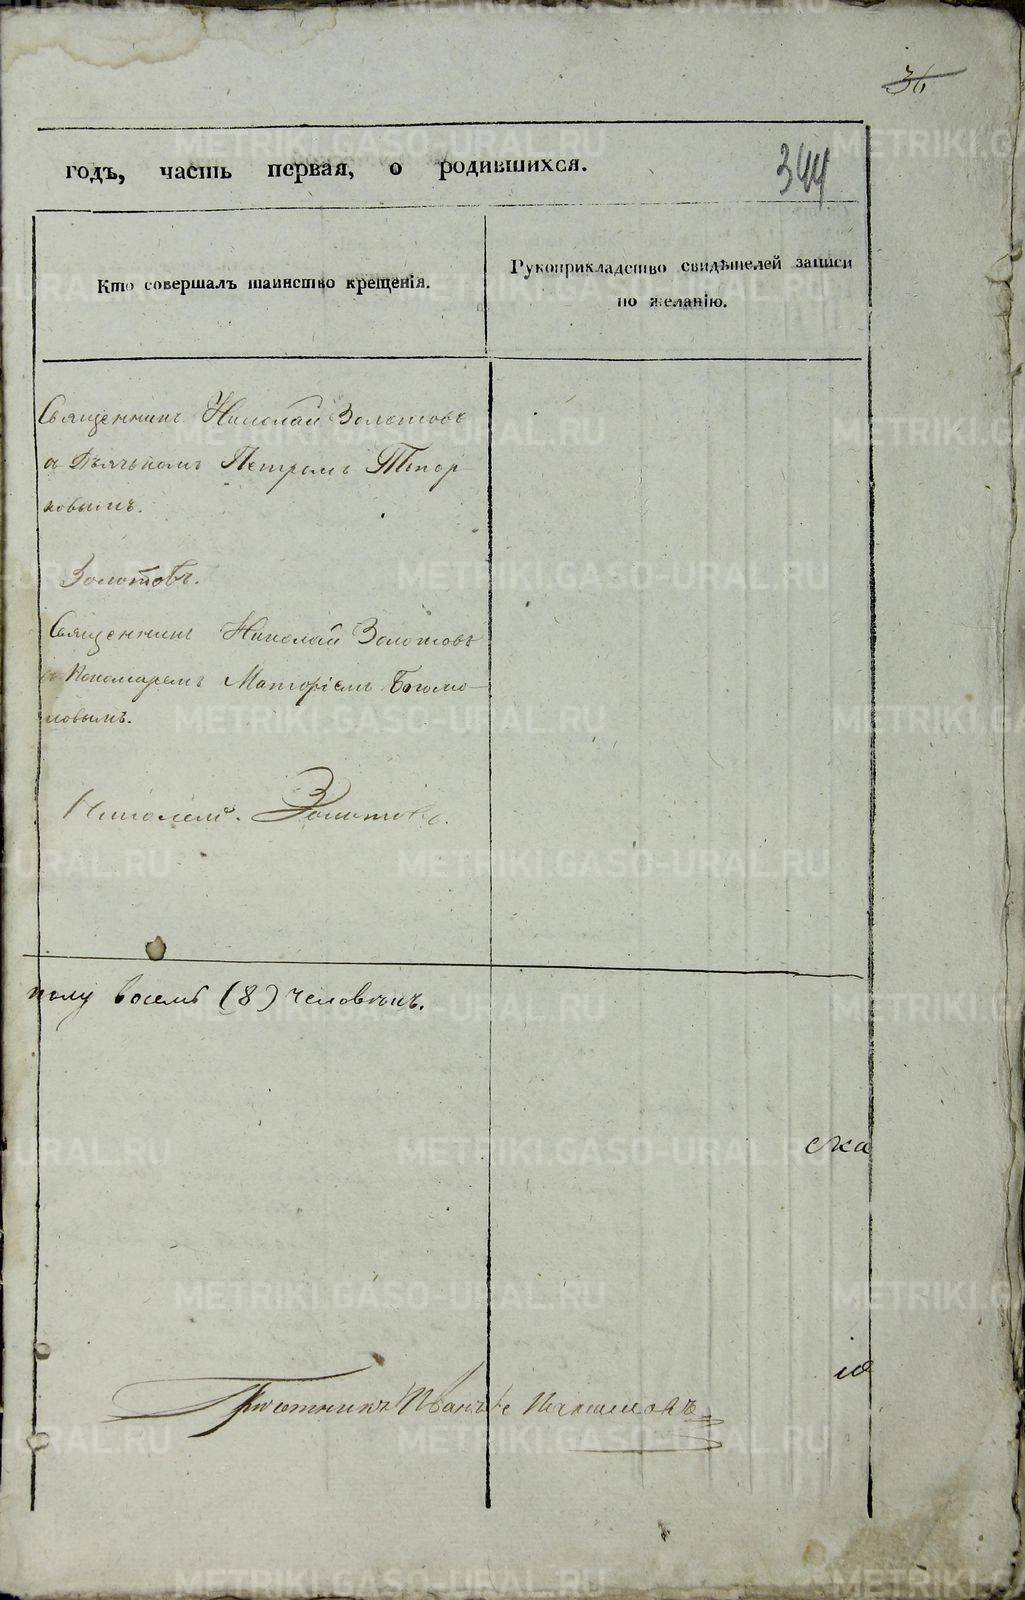 36
344
годъ, часть первая, о родившихся.
Кто совершалъ таинство крещенія.
Рукоприкладство свидѣтелей записи
по желанію.
Священникъ Николай Золотовъ
съ Дьячкомъ Петромъ Топор
ковымъ.
Золотовъ.
Священникъ Николай Золотовъ
съ Пономаремъ Богомо-
ловымъ.
Николай Золотовъ.
полу восемь (8) человѣкъ.
Иванъ
METRIKI.GASO-URAL.RU